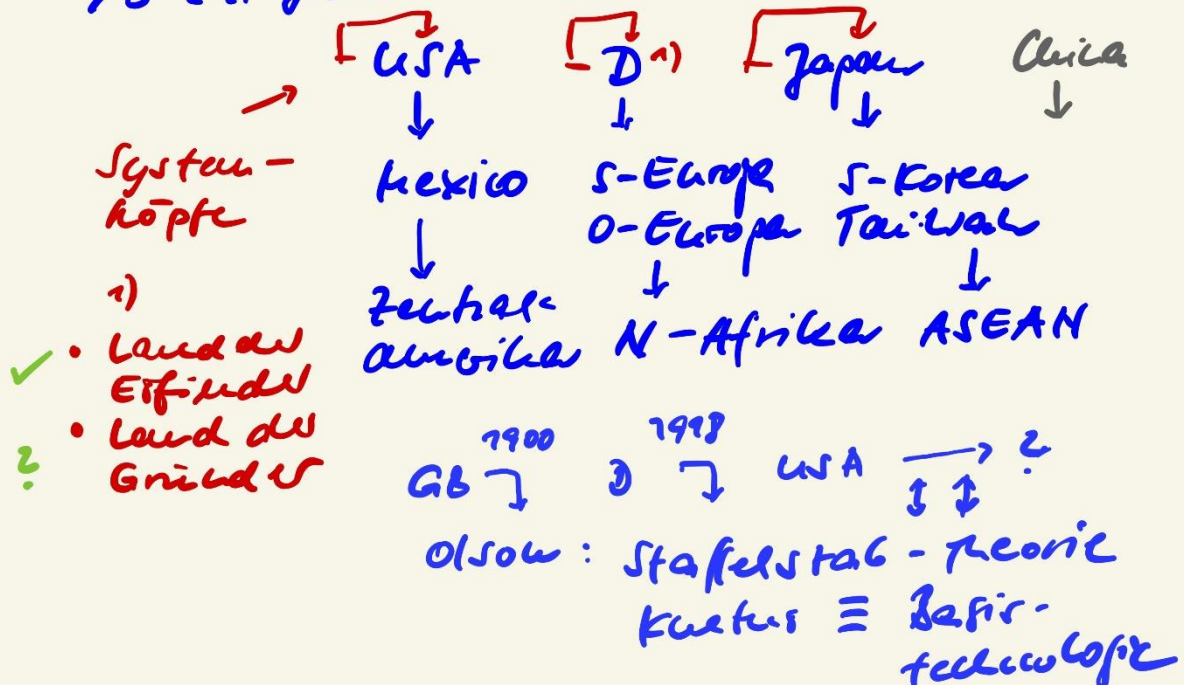 USA D 1) Japan China
System- Mexico S-Europa S-Korea
köpfe O-Europa Taiwan
1) Zentral- N-Afrika ASEAN
• Land der amerika
Erfinder
• Land der
? Gründer
GB 1900 D 1918 USA → ?
Olson: Staffelstab-Theorie
Kultur ≡ Basis-
technologie